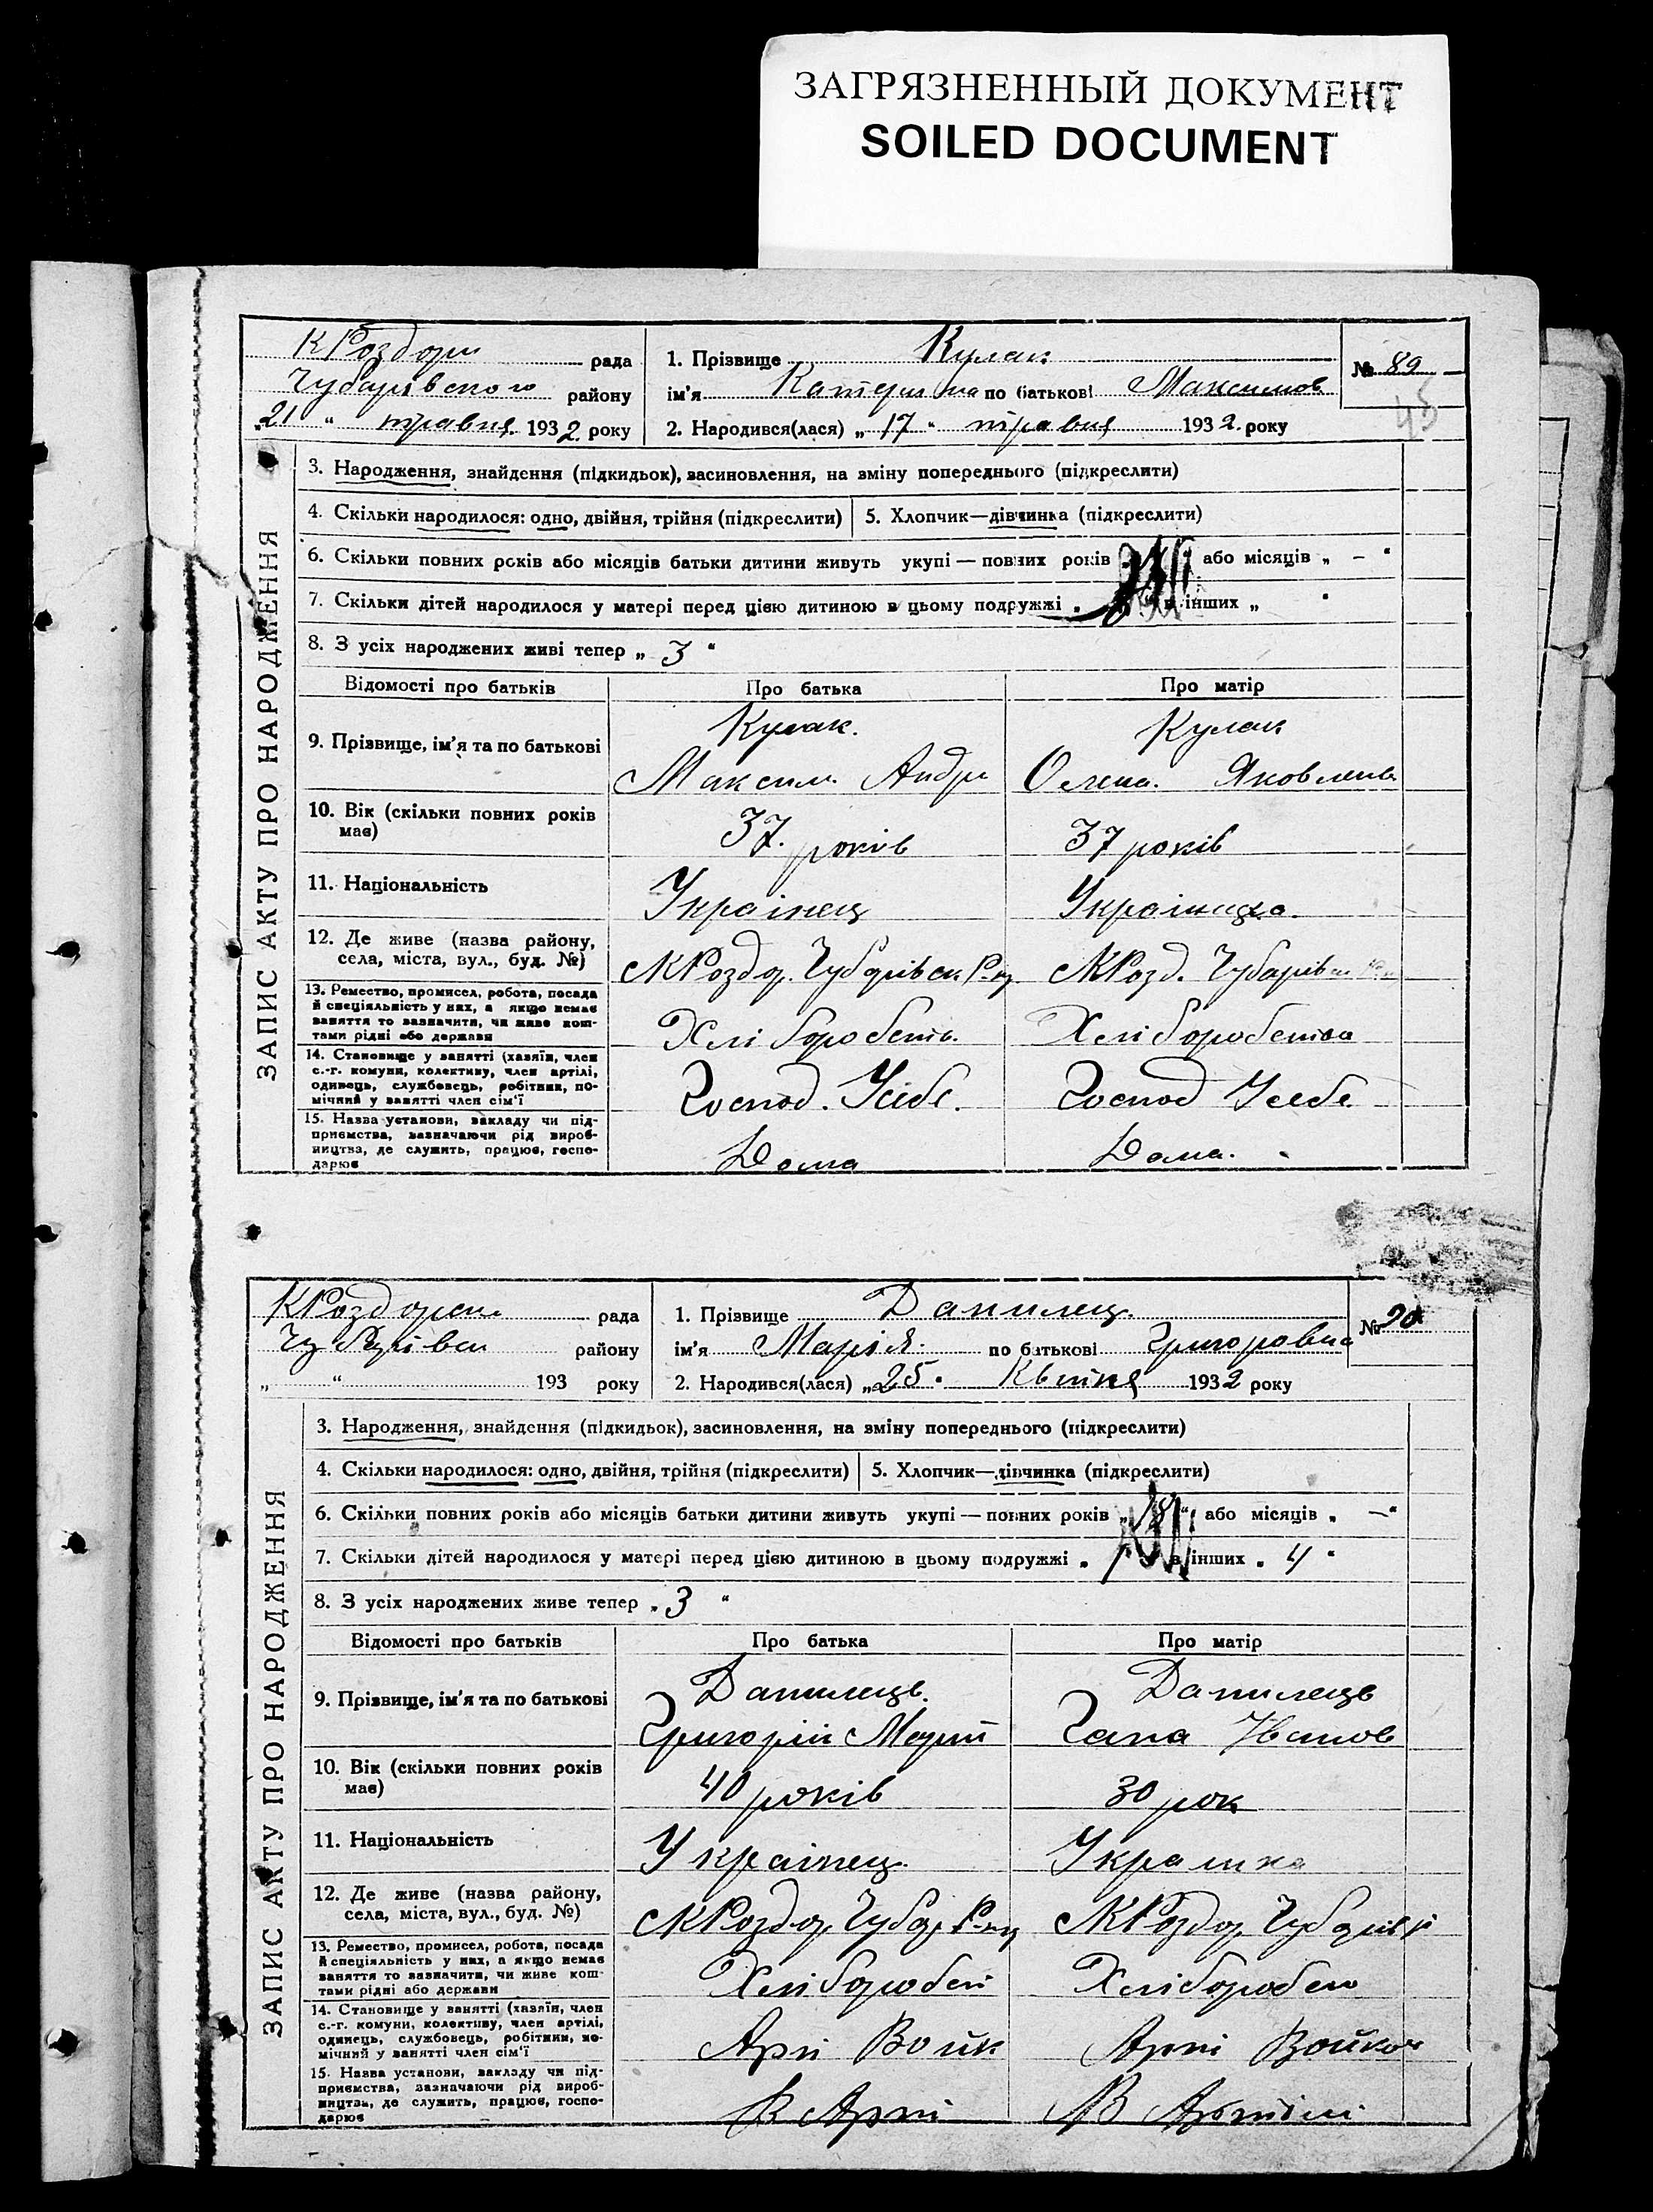 ЗАГРЯЗНЕННЫЙ ДОКУМЕНТ
SOILED DOCUMENT
ЗАПИС АКТУ ПРО НАРОДЖЕННЯ
КРоздори рада
Чубарівського району
„21 “ травня 1932 року
1. Прізвище Кулак
ім'я Катерина по батькові Максимов
2. Народився(лася) „ 17 “ травня 1932 року
№ 89
45
3. Народження, знайдення (підкидьок), засиновлення, на зміну попереднього (підкреслити)
4. Скільки народилося: одно, двійня, трійня (підкреслити) 5. Хлопчик—дівчинка (підкреслити)
6. Скільки повних років або місяців батьки дитини живуть укупі — повних років або місяців „ – “
7. Скільки дітей народилося у матері перед цією дитиною в цьому подружжі „ в інших „ “
8. З усіх народжених живі тепер „ 3 “
Відомості про батьків Про батька Про матір
9. Прізвище, ім'я та по батькові
Кулак. Кулак
Максим. Андр Олена. Яковлева
10. Вік (скільки повних років має)
37. років 37 років
11. Національність
Українец Українцка.
12. Де живе (назва району,
села, міста, вул., буд. №)
КРоздор. Чубарівск. Р-ну КРозд. Чубарівск
13. Ремество, промисел, робота, посада
й спеціяльність у них, а якщо немає
заняття то зазначити, чи живе кош-
тами рідні або держави
Хліборобств. Хліборобства
14. Становище у занятті (хазяїн, член
с.-г. комуни, колективу, член артілі,
одинець, службовець, робітник, по-
мічний у занятті член сім'ї
Господ. Усібе. Господ Усебе.
15. Назва установи, закладу чи під-
приємства, зазначаючи рід вироб-
ництва, де служить, працює, госпо-
дарює
Дома Дома.
ЗАПИС АКТУ ПРО НАРОДЖЕННЯ
КРоздорськ рада
Чубарівск району
„ “ 193 року
1. Прізвище Данилец.
ім'я Марія. по батькові Григоровна
2. Народився(лася) „25 “ Квітня 1932 року
№ 90
3. Народження, знайдення (підкидьок), засиновлення, на зміну попереднього (підкреслити)
4. Скільки народилося: одно, двійня, трійня (підкреслити) 5. Хлопчик—дівчинка (підкреслити)
6. Скільки повних років або місяців батьки дитини живуть укупі — повних років або місяців „ –“
7. Скільки дітей народилося у матері перед цією дитиною в цьому подружжі „ в інших „ 4 “
8. З усіх народжених живе тепер „ 3 “
Відомості про батьків Про батька Про матір
9. Прізвище, ім'я та по батькові
Данилець. Данилець
Григорій Марти Гана Іванов
10. Вік (скільки повних років має)
40 років 30 рок
11. Національність
Українец. Украинка
12. Де живе (назва району,
села, міста, вул., буд. №)
КРоздор, Чубар, Р-ну КРоздор, Чубарівк
13. Ремество, промисел, робота, посада
й спеціяльність у них, а якщо немає
заняття то зазначити, чи живе кош-
тами рідні або держави
Хлібороб Хлібороб
14. Становище у занятті (хазяїн, член
с.-г. комуни, колективу, член артілі,
одинець, службовець, робітник, по-
мічний у занятті член сім'ї
Арті Войк Арті Войков
15. Назва установи, закладу чи під-
приємства, зазначаючи рід вироб-
ництва, де служить, працює, госпо-
дарює
В Арті В Артілі